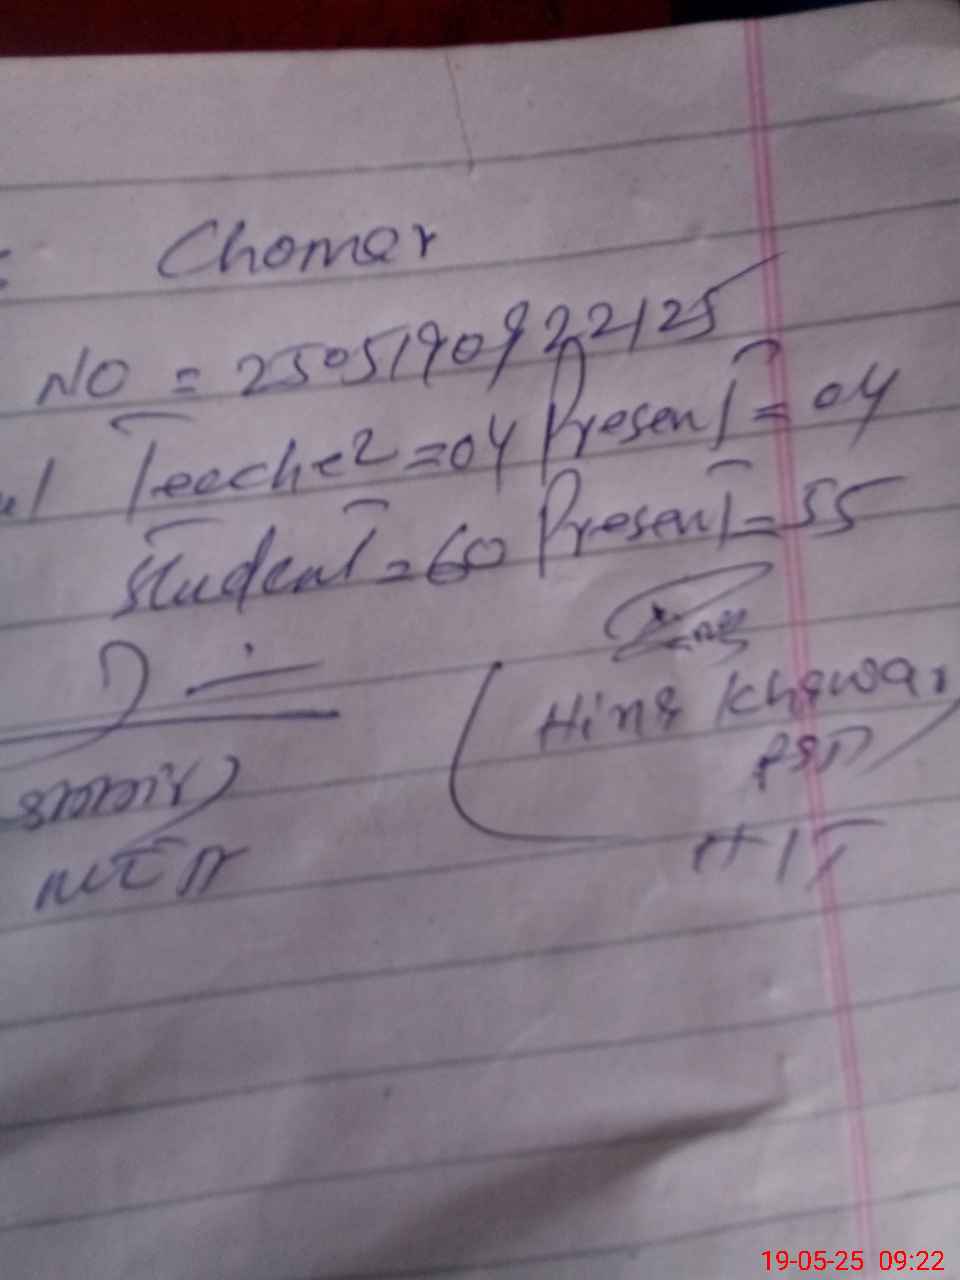 Chomer
NO = 2505190922125
Teacher = 04 Present = 04
Student = 60 Present = 55
Hina Khawar
PST
HIT
19-05-25 09:22